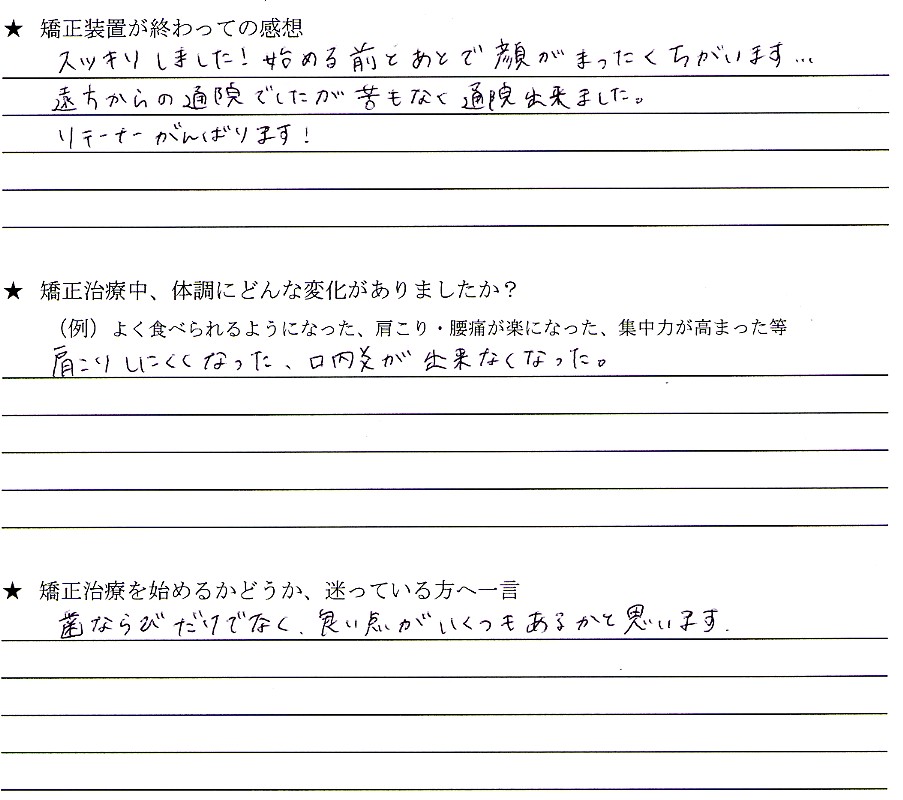 ★ 矯正装置が終わっての感想
スッキリしました!始める前とあとで顔がまったくちがいます…
遠方からの通院でしたが苦もなく通院出来ました。
リテーナーがんばります!
★ 矯正治療中、体調にどんな変化がありましたか?
(例)よく食べられるようになった、肩こり・腰痛が楽になった、集中力が高まった等
肩こりしにくくなった、口内炎が出来なくなった。
★ 矯正治療を始めるかどうか、迷っている方へ一言
歯ならびだけでなく、良い点がいくつもあるかと思います.